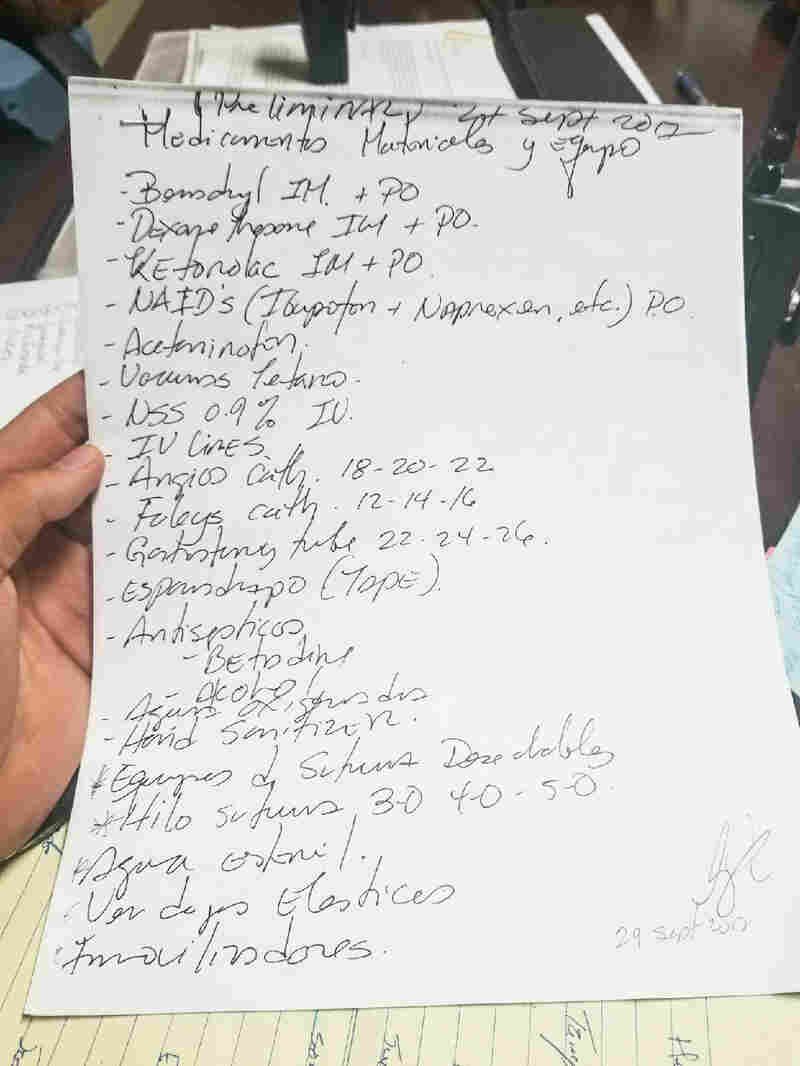 (Preliminary) 29 Sept 2017
Medicamentos Materiales y Equipo
- Benadryl IM. + PO
- Dexamethasone IM + PO.
- KEtorolac IM + PO.
- NAID's (Ibuprofen + Naproxen, etc.) P.O.
- Acetaminofen.
- Vacunas Tetano.
- NSS 0.9% IV.
- IV LINES
- Angio Cath. 18-20-22
- Foleys cath. 12-14-16
- Gastrostomy tube 22-24-26.
- Esparadrapo (TAPE).
- Antisepticos
- BEtadine
- Alcohol
- Agua oxigenada
- Hand Sanitizer.
* Equipos de Sutura Desechables
* Hilo sutura 3-0 4-0 - 5-0.
* Agua esteril.
Vendajes Elasticos
Inmovilizadores.
29 Sept 2017